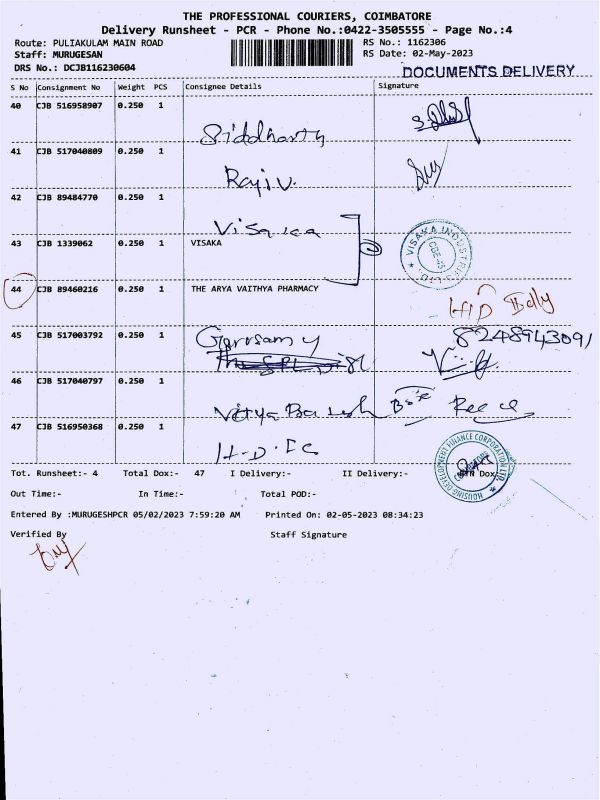 THE PROFESSIONAL COURIERS, COIMBATORE
Delivery Runsheet - PCR - Phone No.:0422-3505555 - Page No.:4
Route: PULIAKULAM MAIN ROAD
RS No.: 1162306
Staff: MURUGESAN
RS Date: 02-May-2023
DRS No.: DCJB116230604
DOCUMENTS DELIVERY
S No Consignment No Weight PCS Consignee Details Signature
40 CJB 516958907 0.250 1
Siddharth
41 CJB 517040809 0.250 1
Raji v.
42 CJB 89484770 0.250 1
Visaka
43 CJB 1339062 0.250 1 VISAKA
VISAKA INDUSTRIES LTD.
CBE-45
44 CJB 89460216 0.250 1 THE ARYA VAITHYA PHARMACY
H/D
45 CJB 517003792 0.250 1
8248943091
46 CJB 517040797 0.250 1
47 CJB 516950368 0.250 1
H.D.F.C
HOUSING DEVELOPMENT FINANCE CORPORATION LTD.
Tot. Runsheet:- 4 Total Dox:- 47 I Delivery:- II Delivery:- Dox
Out Time:- In Time:- Total POD:-
Entered By :MURUGESHPCR 05/02/2023 7:59:20 AM Printed On: 02-05-2023 08:34:23
Verified By Staff Signature